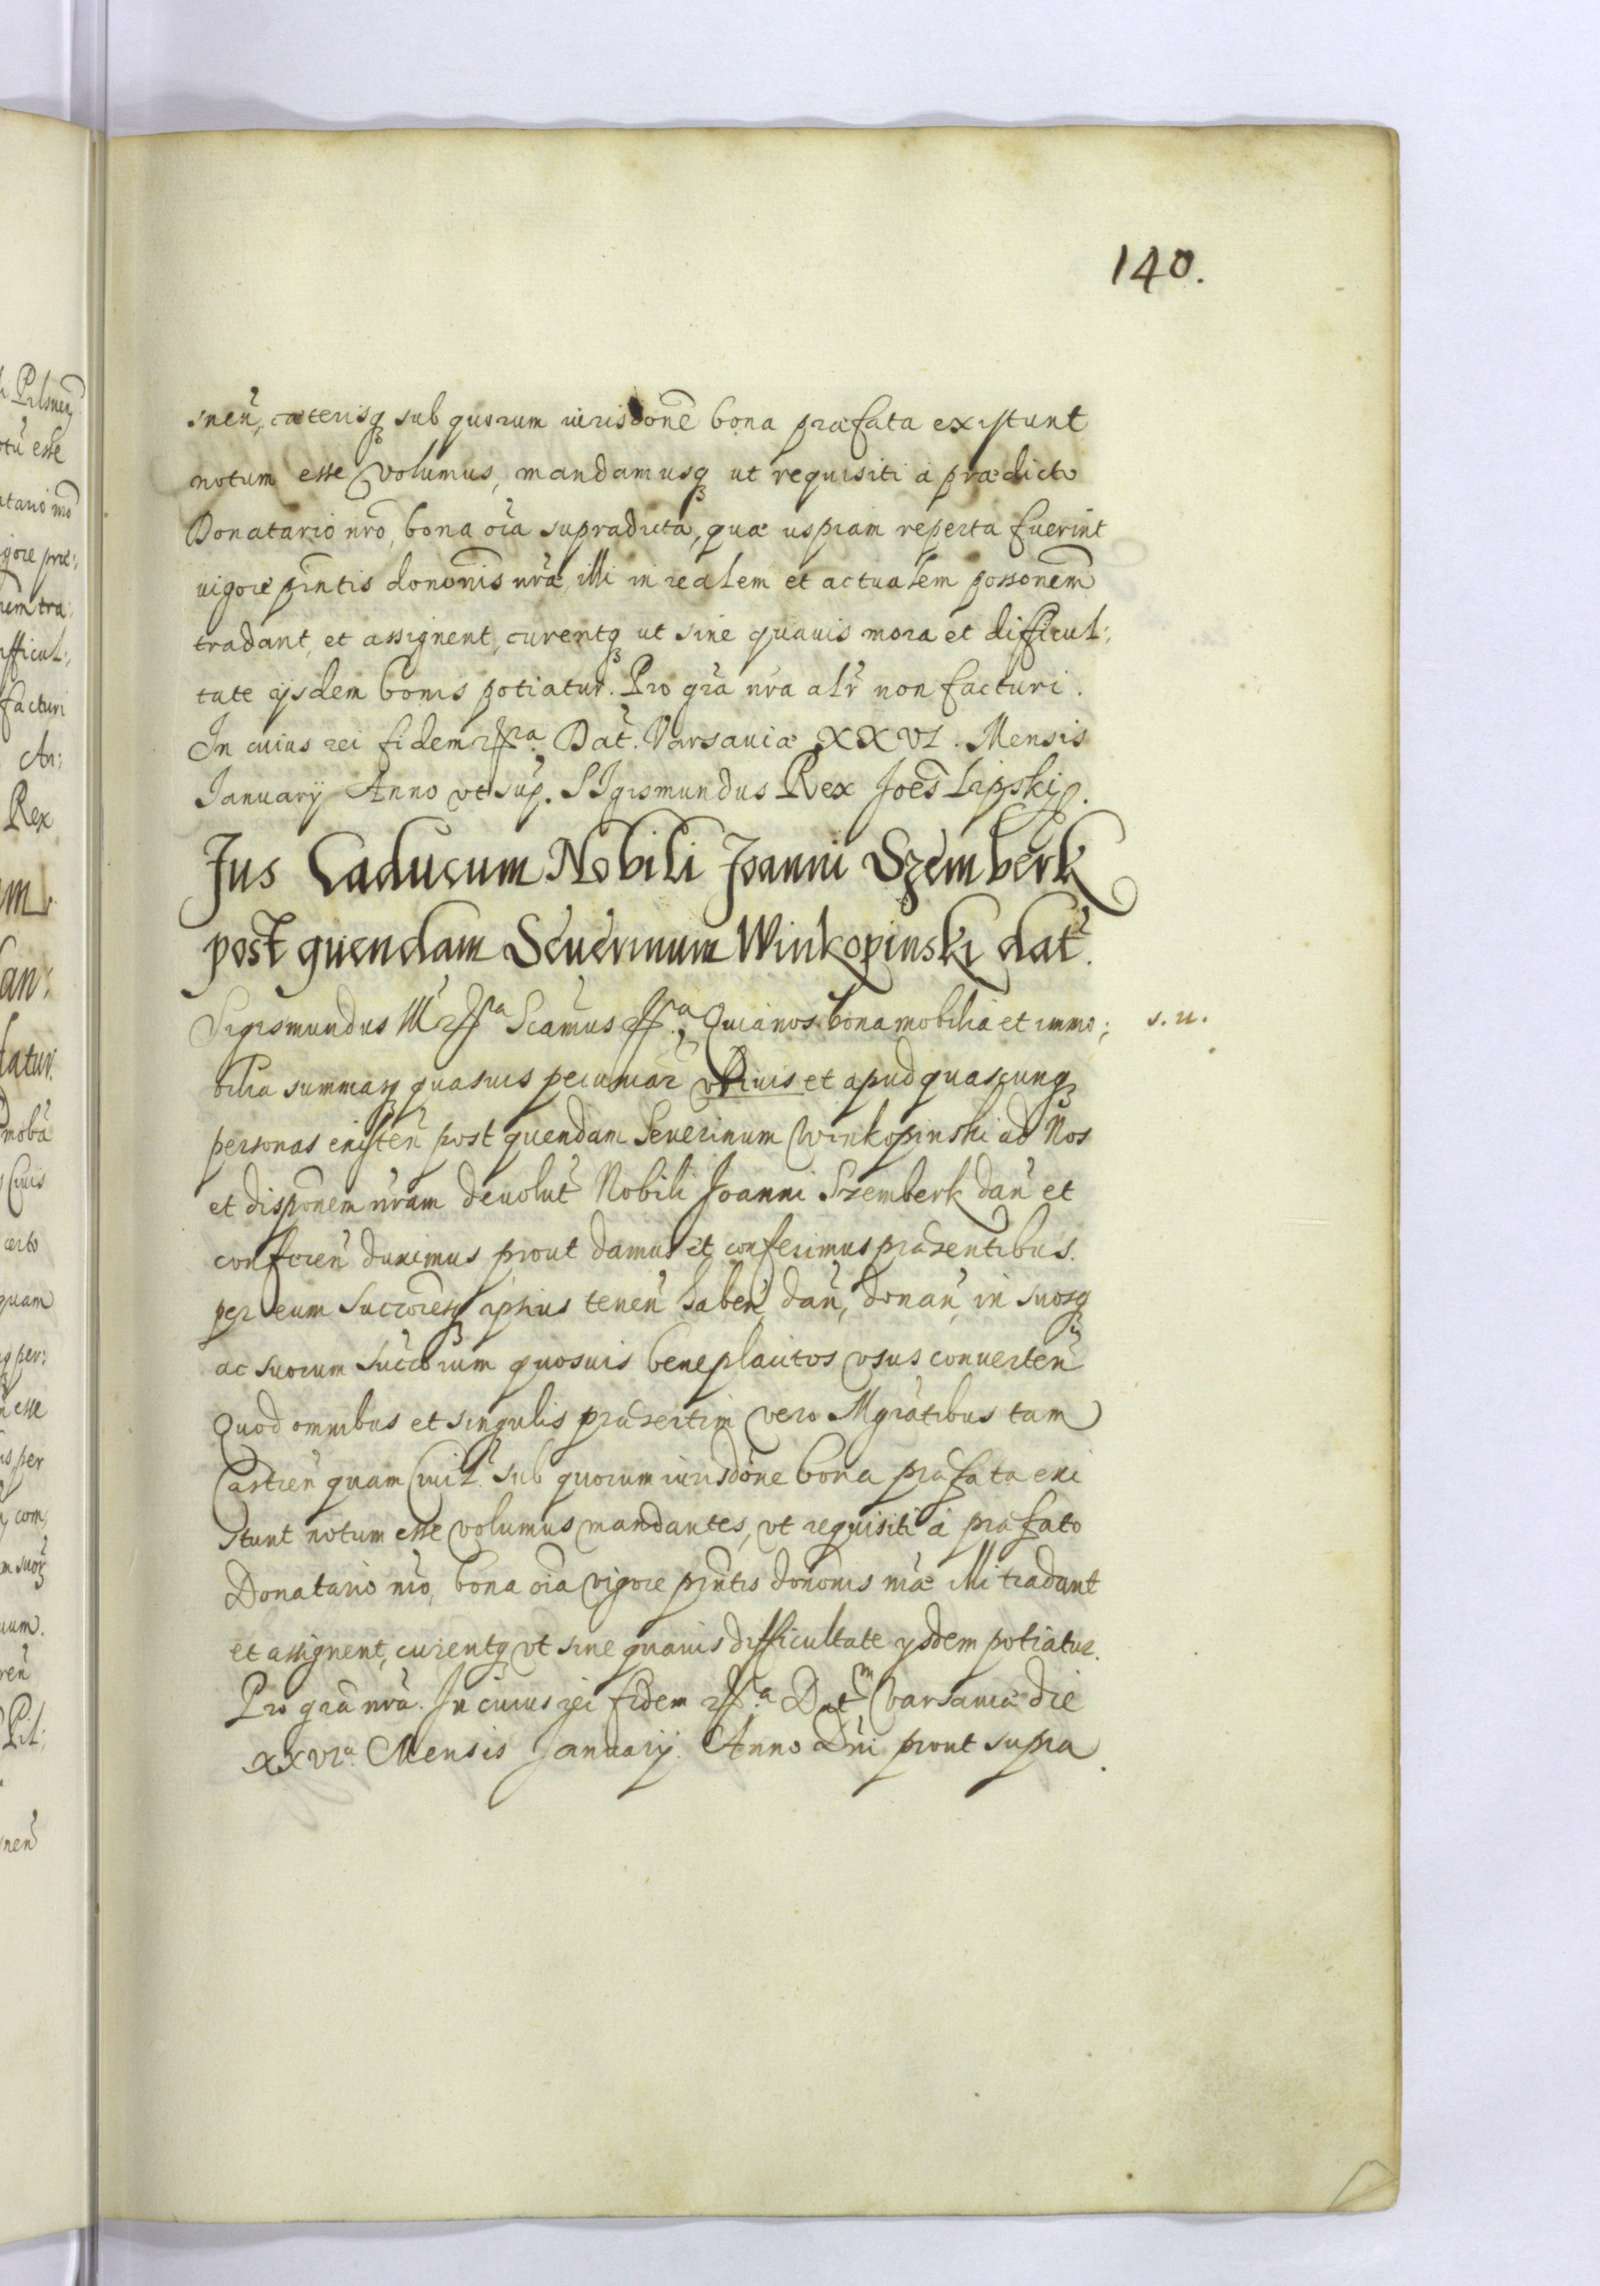 140.
snen̄, cæterisq₃ sub quorum iurisdōne bona præfata existunt
notum esse volumus, mandamusq₃ ut requisiti à prædicto
Donatario nrō, bona oīa supradicta, quæ uspiam reperta fuerint
vigore pn̄tis donōnis nrā illi in realem et actualem possonem̄
tradant, et assignent, curentq₃ ut sine quavis mora et difficul:
tate ijsdem bonis potiatur. Pro gīa nrā alr̄ non facturi.
In cuius rei fidem Dat̄. Varsaviæ XXVI. Mensis
Januarij Anno vt sup̄. SIgismundus Rex Joēs Lipski
Jus Caducum Nobili Joanni Szemberk
post quendam Seuerinum Winkopinski dat̄.
Sigismundus III Scāmus Quia nos bona mobilia et immo:
bilia summasq₃ quasuis pecuniar̄ vbiuis et apud quascunq₃
personas existen̄ post quendam Seuerinum Winkopinski ad Nos
et dispōnem nrām deuolut̄ Nobili Joanni Szemberk dan̄ et
conferen̄ duximus prout damus et conferimus præsentibus.
per eum Succōresq₃ ipsius tenen̄ haben̄, dan̄, donan̄, in suosq₃
ac suorum succōrum quosuis beneplacitos vsus conuerten̄
Quod omnibus et singulis præsertim vero Mgrātibus tam
Castren̄ quam Ciuil̄. sub quorum iurisdōne bona præfata exi
stunt notum esse volumus mandantes, vt requisiti à præfato
Donatario nrō, bona oīa vigore pn̄tis donōnis nrāe illi tradant
et assignent, curentq₃ vt sine quauis difficultate ysdem potiatur.
Pro grā nrā. In cuius rei fidem Datm Varsauiæ die
XXVIa. Mensis Januarij. Anno Dn̄i prout supra.
s. u.